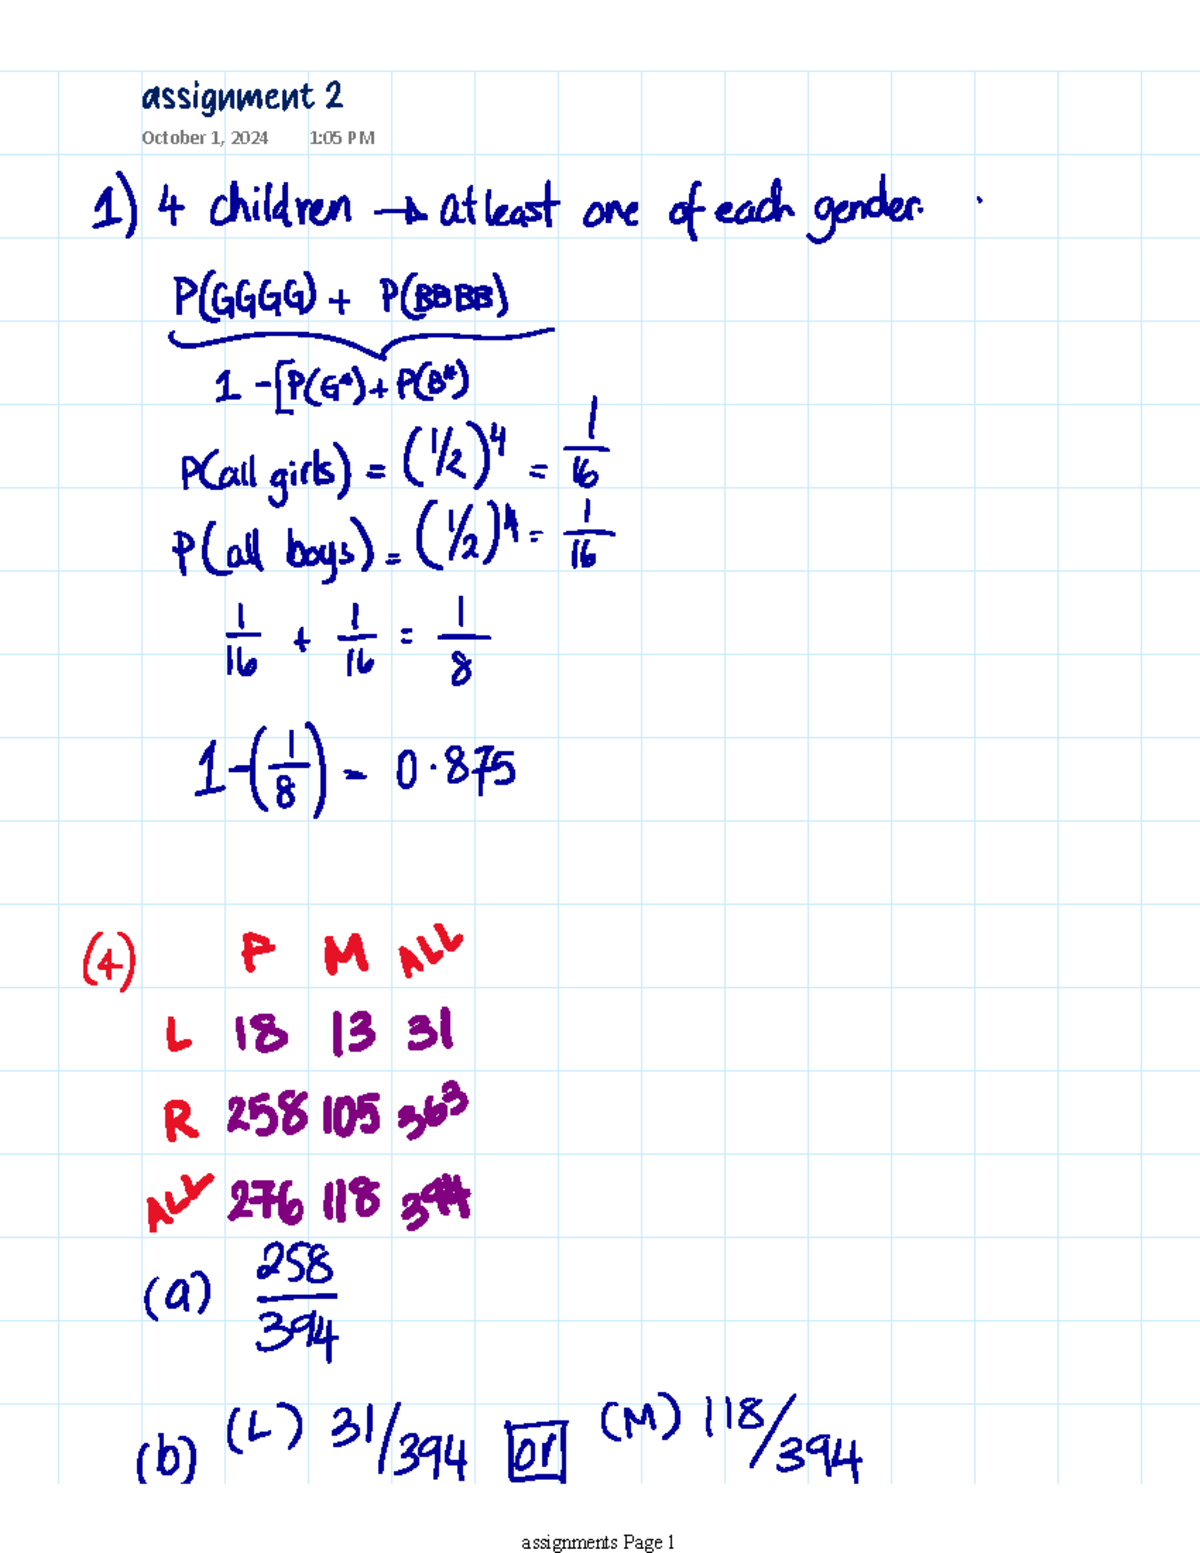 assignment 2
October 1, 2024 1:05 PM
1) 4 children → at least one of each gender.
P(GGGG) + P(BBBB)
1 - [P(G⁴) + P(B⁴)
P(all girls) = (1/2)^4 = 1/16
P(all boys) = (1/2)^4 = 1/16
1/16 + 1/16 = 1/8
1-(1/8) = 0.875
(4) P M ALL
L 18 13 31
R 258 105 363
ALL 276 118 394
(a) 258/394
(b) (L) 31/394 or (M) 118/394
assignments Page 1